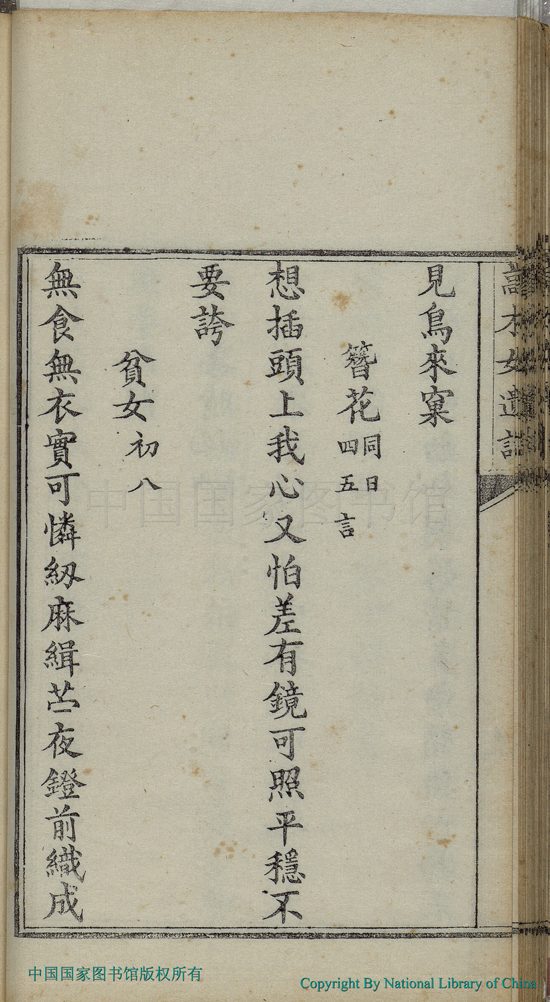 見鳥來窠
簪花同日四五言
想插頭上我心又怕差有鏡可照平穩不
要誇
貧女初八
無食無衣實可憐紉麻緝苎夜鐙前織成
中国国家图书馆
中国国家图书馆版权所有
Copyright By National Library of China